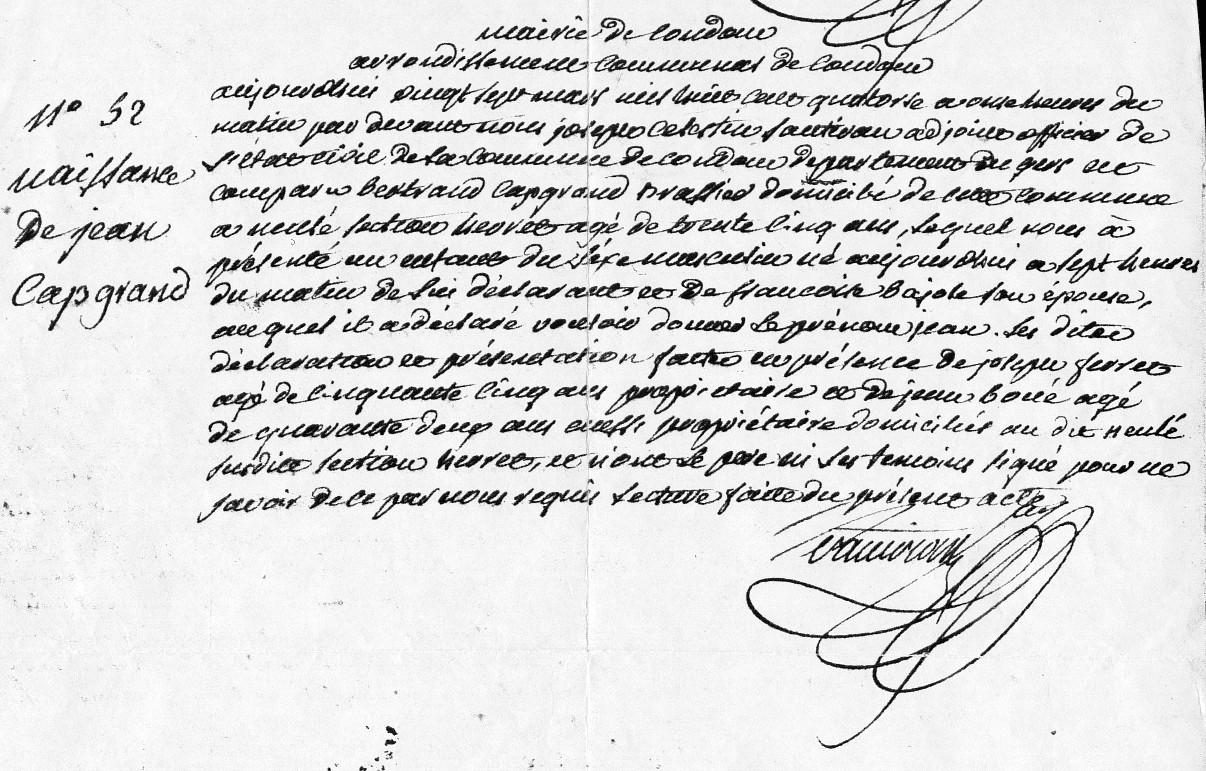 mairie de Condom
arrondissement Communal de Condom
N° 52
naissance
De jean
Capgrand
aujourdhui vingt sept mars mil huit cent quatorse a onse heures du
matin par devant nous joseph Celestin adjoint officier de
l'état civil de la Commune de Condom departement du gers est
comparu bertrand Capgrand brassier domicilié de cette Commune
a section herret agé de trente Cinq ans, lequel nous à
présenté un enfant du séxe masculin né aujourdhui a sept heures
du matin de lui déclarant et De francoise bajole son épouse,
auquel il a déclaré vouloir donner le prénom jean. les dites
déclaration et présentation faites en présence de joseph ferret
agé de Cinquante Cinq ans propriétaire et De jean boué agé
de quarante deux ans aussi propriétaire domiciliés au dit
susdite section herret, et n'ont le pere ni les temoins signé pour ne
savoir de ce par nous requis lecture faite du présent acte